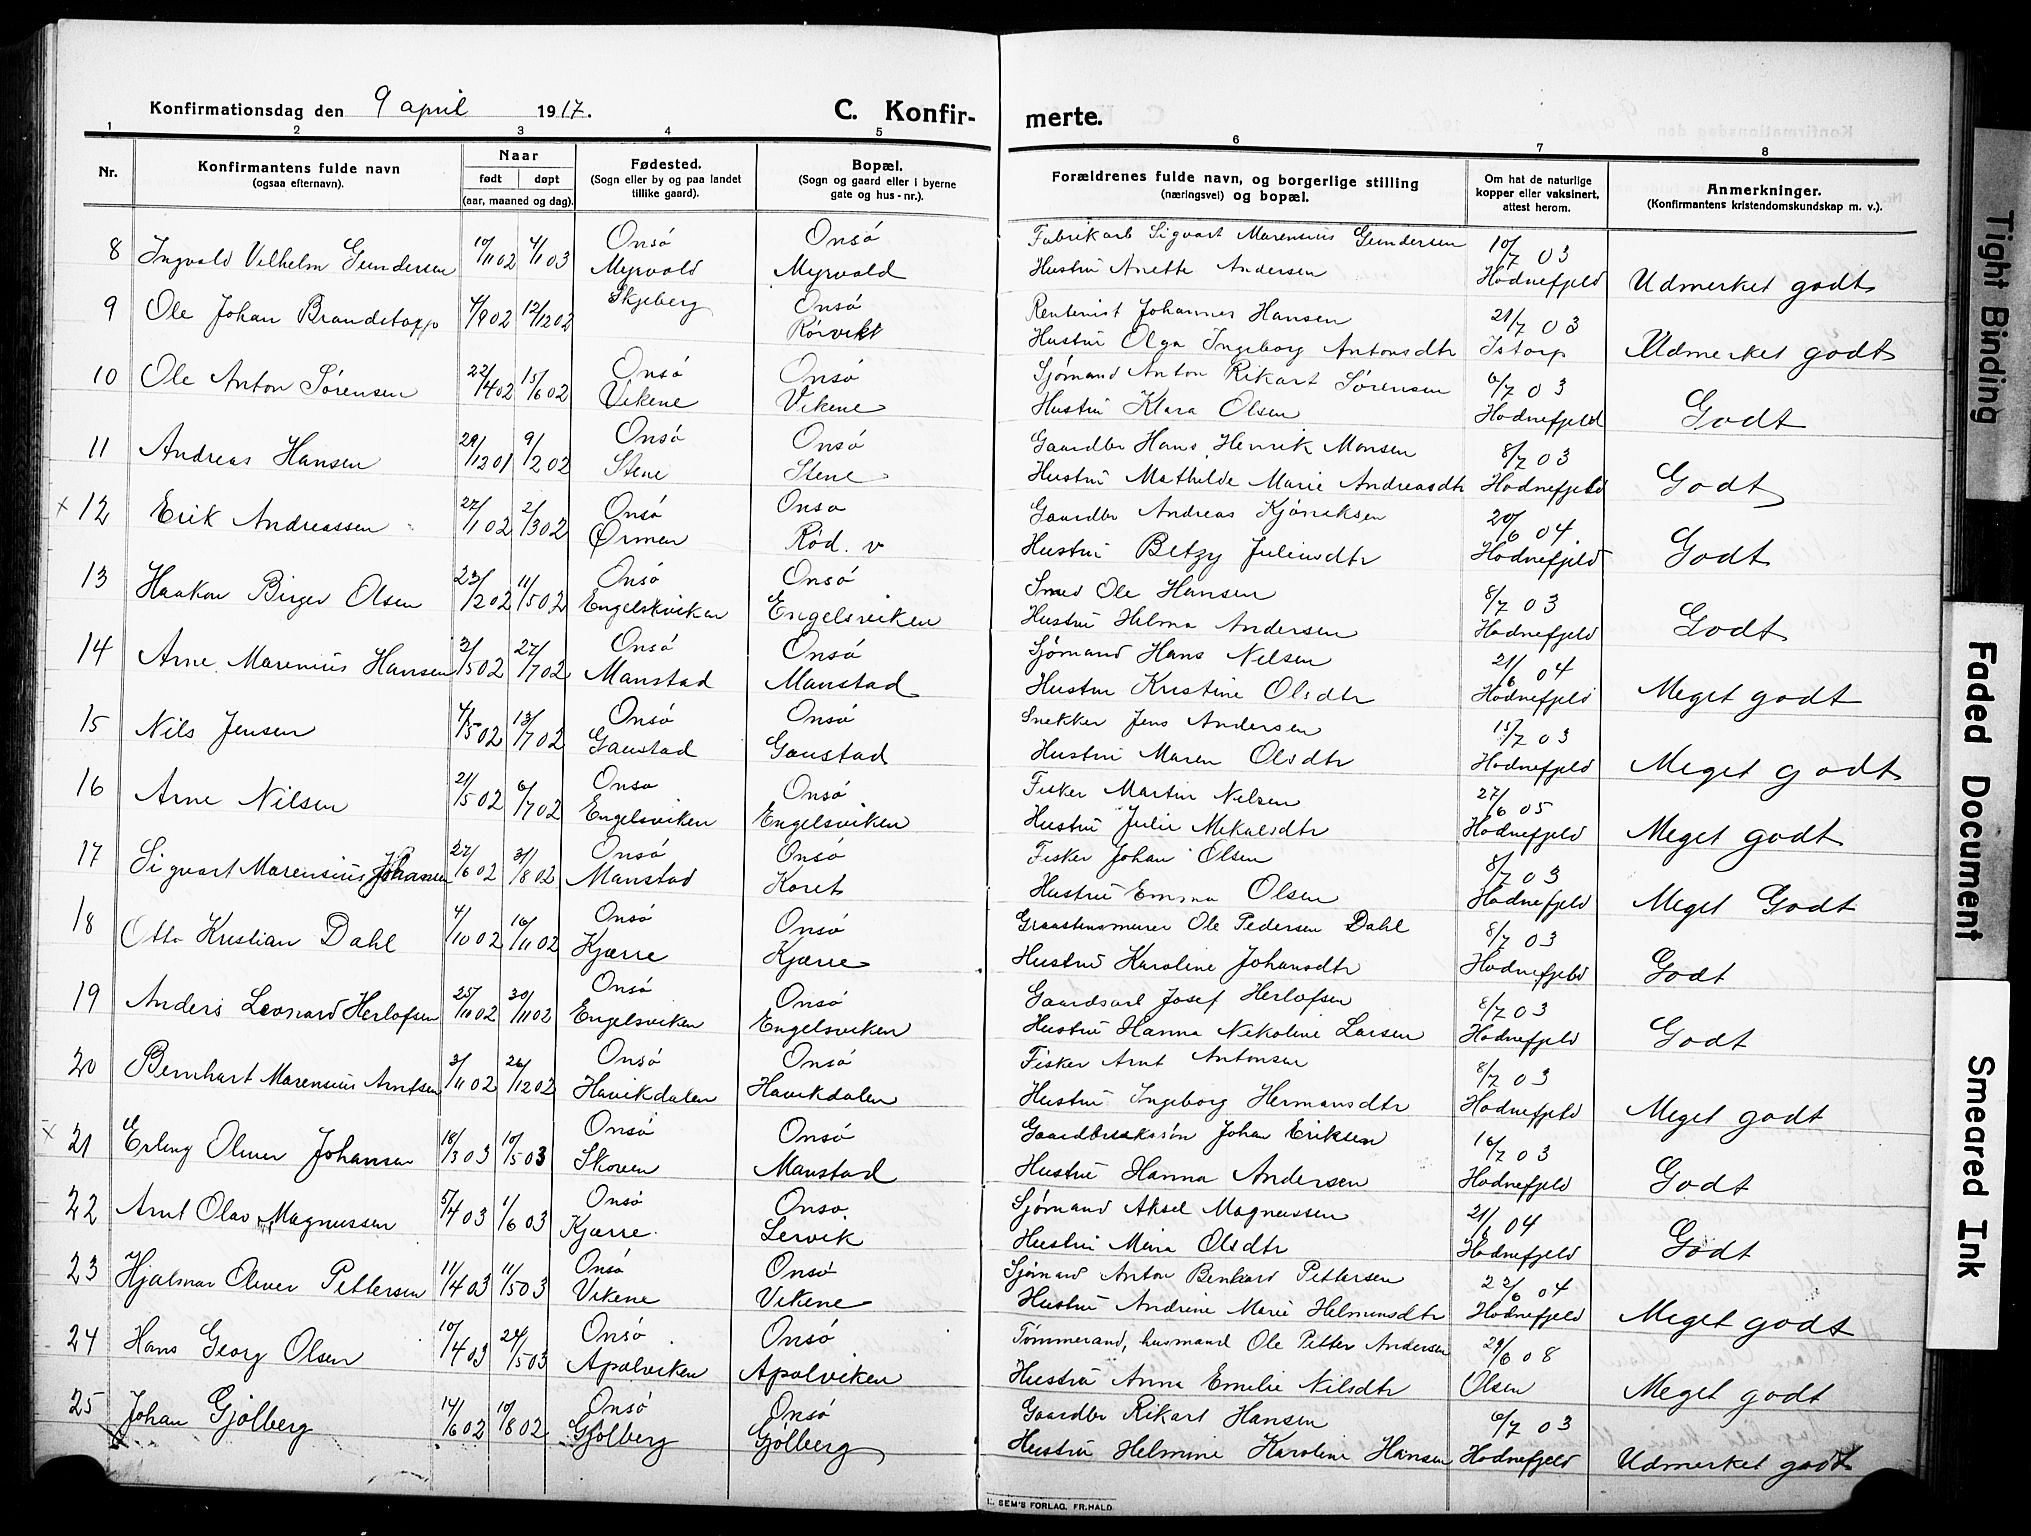 Konfirmationsdag den 9 april 1917. C. Konfir- merte.
1 2 3 4 5 6 7 8
Nr. Konfirmantens fulde navn (ogsaa efternavn). Naar født døpt (aar, maaned og dag). Fødested. (Sogn eller by og paa landet tillike gaard). Bopæl. (Sogn og gaard eller i byerne gate og hus-nr.). Forældrenes fulde navn, og borgerlige stilling (næringsvei) og bopæl. Om hat de naturlige kopper eller vaksinert, attest herom. Anmerkninger. (Konfirmantens kristendomskundskap m. v.).
8 Ingvald Vilhelm Gundersen 10/11 02 4/1 03 Onsö Onsö Fabrikarb Sigvart Marensius Gundersen 10/7 03
Myrvold Myrvold Hustru Anette Andersen Hodnefjeld Udmerket godt
9 Ole Johan Brandstorp 4/9 02 12/12 02 Skjeberg Onsö Rentenist Johannes Hansen 21/7 03
Rörvikt Hustru Olga Ingeborg Antonsdtr Istorp Udmerket godt
10 Ole Anton Sørensen 22/4 02 15/6 02 Onsö Onsö Sjømand Anton Rikart Sørensen 6/7 03
Vikene Vikene Hustru Klara Olsen Hodnefjeld Godt
11 Andreas Hansen 29/12 01 9/2 02 Onsö Onsö Gaardbr Hans Henrik Monsen 8/7 03
Stene Stene Hustru Mathilde Marie Andreasdtr Hodnefjeld Godt
x 12 Erik Andreassen 27/1 02 2/3 02 Onsö Onso Gaardbr Andreas Kjönriksen 20/6 04
Ørmen Röd. v Hustru Betzy Juliusdtr Hodnefjeld Godt
13 Haakon Birger Olsen 23/2 02 11/5 02 Onsö Onsö Smed Ole Hansen 8/7 03
Engelskviken Engelsviken Hustru Helma Andersen Hodnefjeld Godt
14 Arne Marenius Hansen 3/5 02 27/7 02 Onsö Onsö Sjømand Hans Nilsen 21/6 04
Manstad Manstad Hustru Kristine Olsdtr Hodnefjeld Meget godt
15 Nils Jensen 4/5 02 13/7 02 Onsö Onsö Snekker Jens Andersen 15/7 03
Gaustad Gaustad Hustru Maren Olsdtr Hodnefjeld Meget godt
16 Arne Nilsen 21/5 02 6/7 02 Onso Onsö Fisker Martin Nilsen 27/6 05
Engelsviken Engelsviken Hustru Julie Mikalsdtr Hodnefjeld Meget godt
17 Sigvart Marensius Johansen 27/6 02 31/8 02 Onsö Onsö Fisker Johan Olsen 8/7 03
Manstad Karet Hustru Emma Olsen Hodnefjeld Meget Godt
18 Otto Kristian Dahl 4/10 02 16/11 02 Onsö Onsö Graastensmurer Ole Pedersen Dahl 8/7 03
Kjærre Kjærre Hustru Karoline Johansdtr Hodnefjeld Godt
19 Anders Leonard Herlofsen 25/11 02 30/11 02 Onsö Onsö Gaardsarb Josef Herlofsen 8/7 03
Engelsviken Engelsviken Hustru Hanna Nikoline Larsen Hodnefjeld Godt
20 Bernhart Marensius Arntsen 3/11 02 26/12 02 Onsö Onsö Fisker Arnt Antonsen 8/7 03
Havikdalen Havikdalen Hustru Ingeborg Hermansdtr Hodnefjeld Meget godt
x 21 Erling Oliver Johansen 18/3 03 10/5 03 Onsö Onsö Johan Eriksen 16/7 03
Skoven Manstad Hustru Hanna Andersen Hodnefjeld Godt
22 Arnt Olav Magnussen 5/4 03 1/6 03 Onsö Onsö Sjømand Aksel Magnussen 21/6 04
Kjærre Lervik Hustru Mina Olsdtr Hodnefjeld Godt
23 Hjalmar Oliver Pettersen 11/4 03 11/5 03 Onsö Onsö Sjømand Anton Benhard Pettersen 22/6 04
Vikene Vikene Hustru Andrine Marie Helminsdtr Hodnefjeld Meget godt
24 Hans Georg Olsen 10/4 03 24/5 03 Onsö Onsö Tømmerand, husmand Ole Petter Andersen 29/6 08
Apalviken Apalviken Hustru Anna Emilie Nilsdtr Olsen Meget godt
25 Johan Gjölberg 14/6 02 10/8 02 Onsö Onsö Gaardbr Rikart Hansen 6/7 03
Gjölberg Gjölberg Hustru Helmine Karoline Hansen Hodnefjeld Udmerket godt
SEM'S FORLAG, FR.HALD
Tight Binding
Faded Document
Smeared Ink